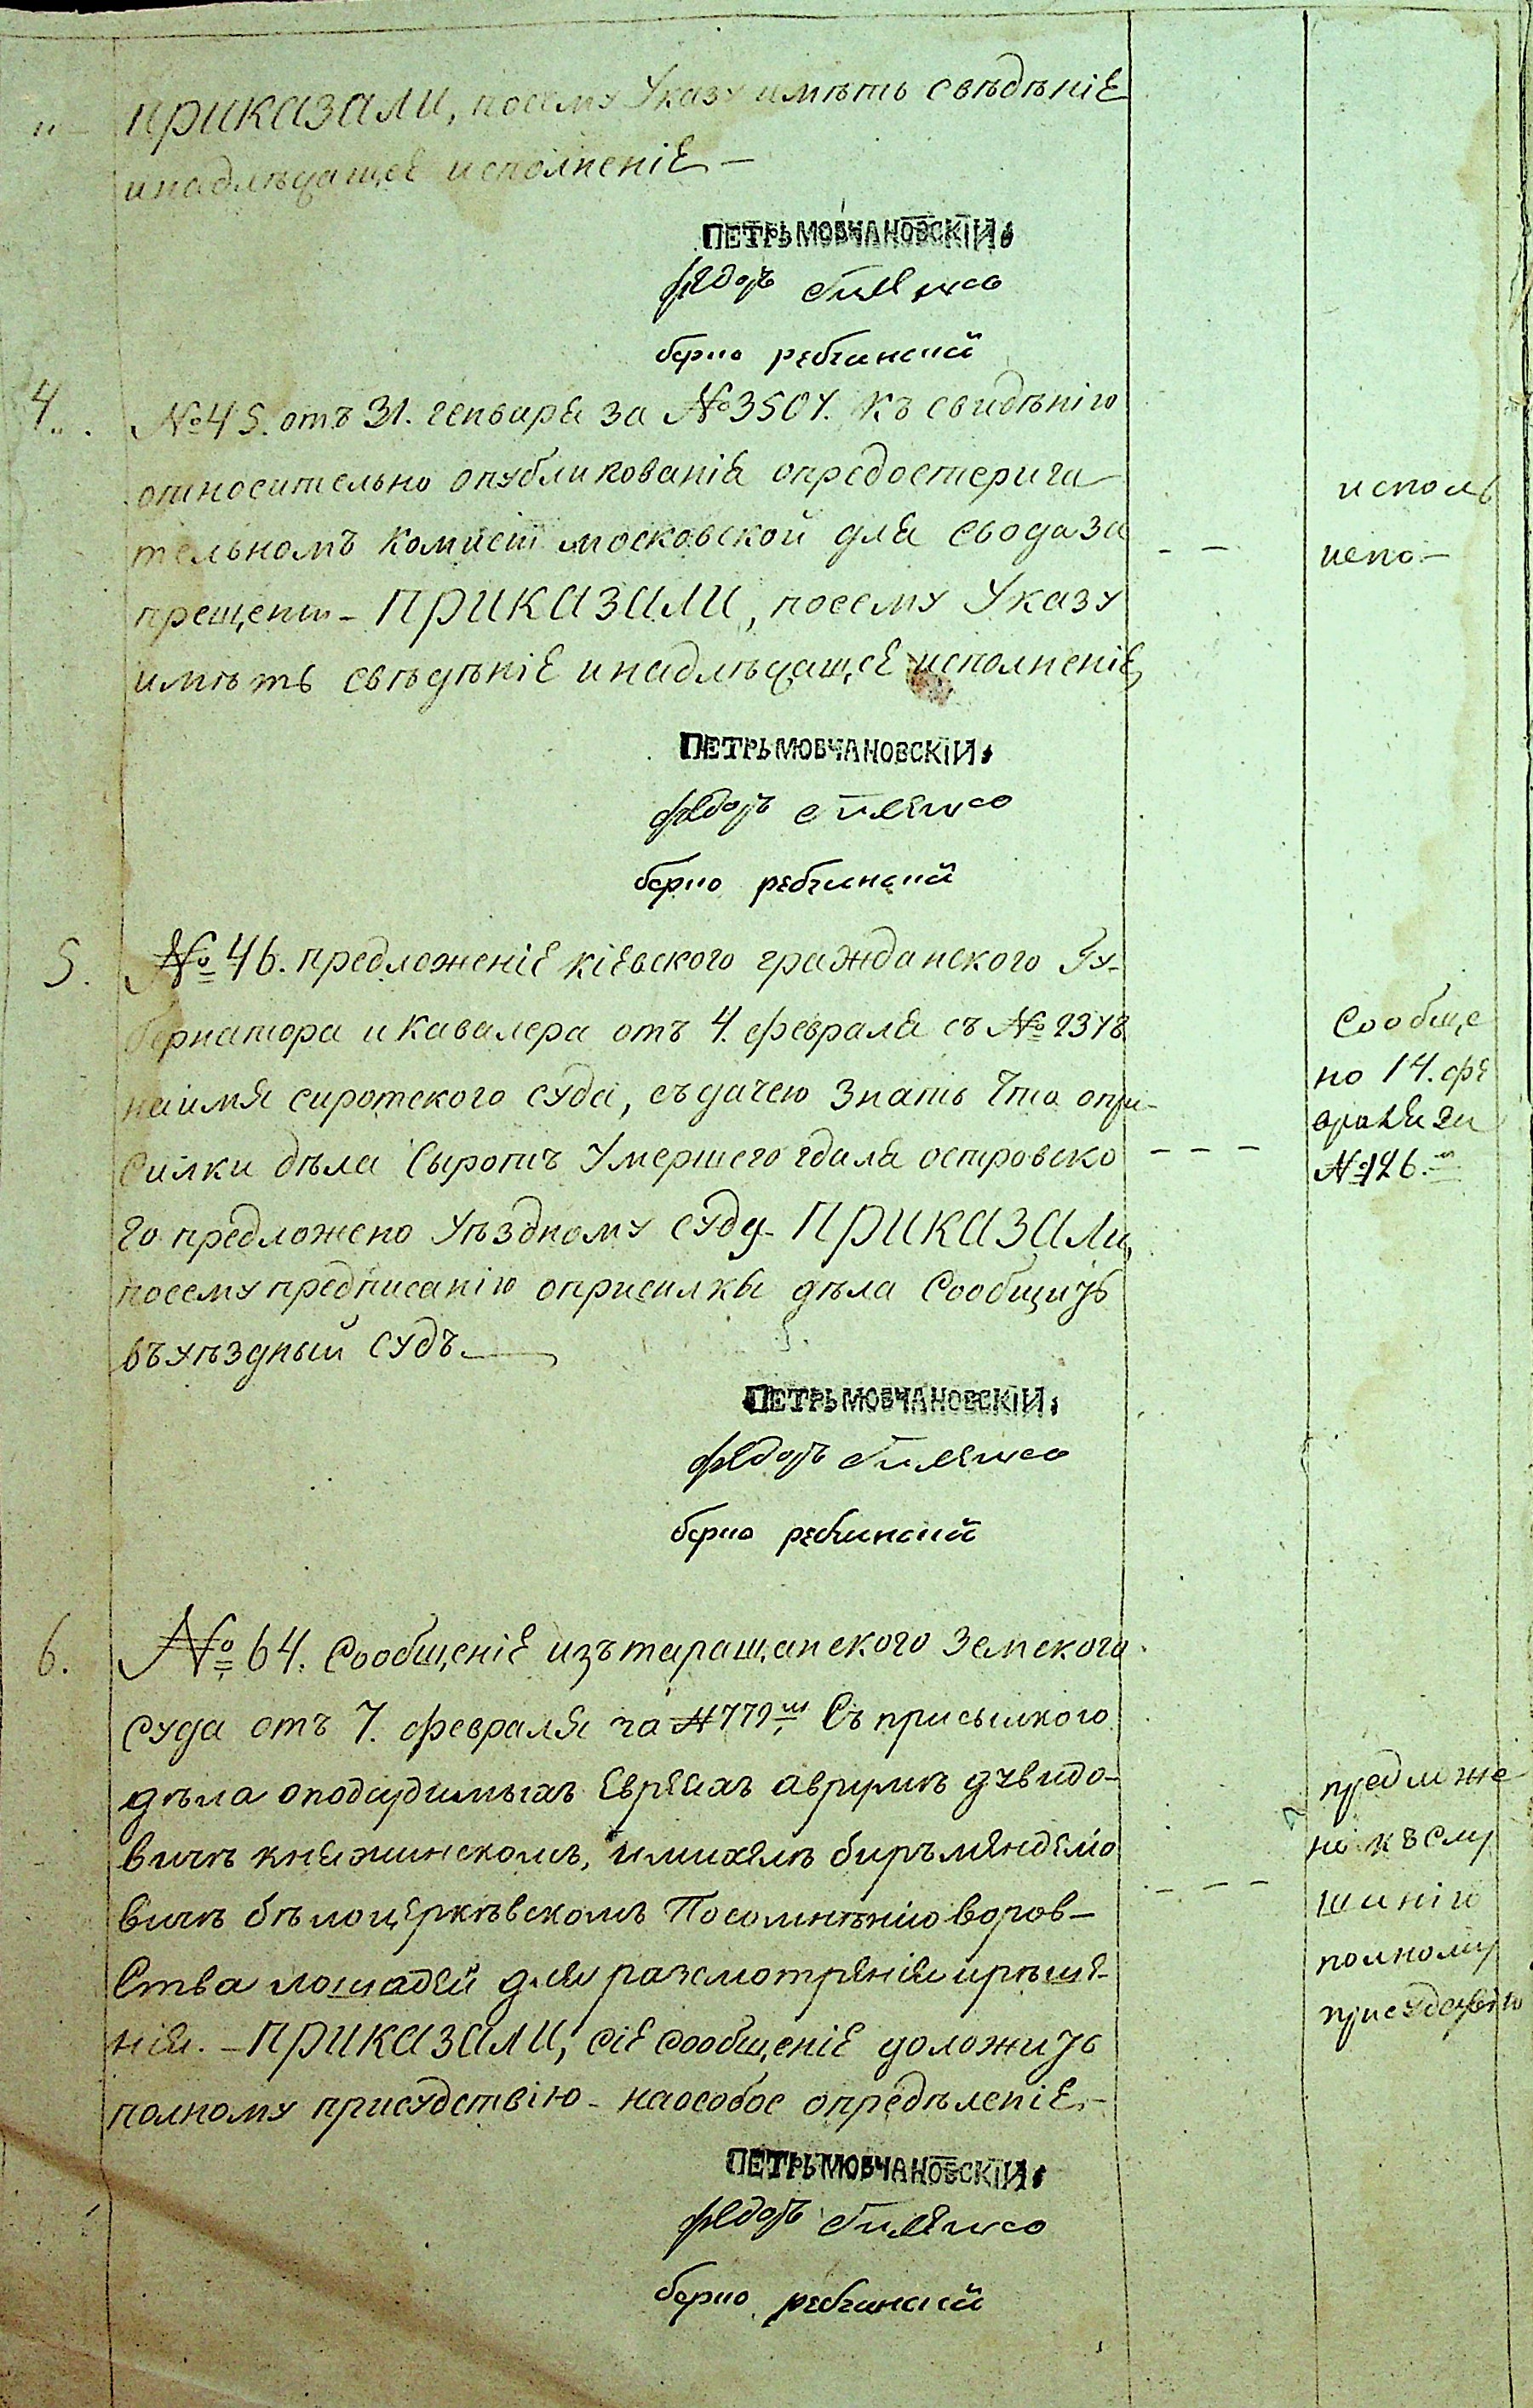 „ – ПРИКАЗАЛИ, посему Указу имѣть свѣдѣніе
инадлѣдащее исполненіе –
ПЕТРЬ МОВЧАНОВСКІИ
федоръ
берко
4. № 45. отъ 31. генваря за № 3507. Къ свидѣнію
относительно опубликованія опредостерига
тельномъ комисіи московской для свода за
прещеній – ПРИКАЗАЛИ, посему Указу
имѣть свѣдѣніе инадлѣдащее исполненіе
исполь
испо –
ПЕТРЬ МОВЧАНОВСКІИ
федоръ
берко
5. № 46. предложеніе кіевского гражданского Гу-
бернатора и кавалера отъ 4. февраля съ № 2378
наимя сиротского суда, съдачею знать что опри-
силки дѣла Сыротъ Умершего гдаля островско
го предложено Уѣздному суду – ПРИКАЗАЛИ,
посему предписанію оприсилки дѣла Сообщить
въуѣздный судъ.
Сообще
но 14. фе
враля за
№ 126.
ПЕТРЬ МОВЧАНОВСКІИ
федоръ
берко
6. № 64. Сообщеніе изътаращанского земского
суда отъ 7. февраля за № 779 Съ присылкою
дѣла оподсудимыхъ Евреяхъ аврумѣ дувидо-
вичѣ княжинскомъ, имихелѣ беръ мендело
вичѣ бѣлоцерквскомъ Посомнѣнию воров-
Ства лошадей для разсмотренія ирѣше-
нія. – ПРИКАЗАЛИ, сіе сообщеніе доложить
полному присудствію – наособое опредѣленіе. –
предложе
но къ слу
шанію
полному
присудствію
ПЕТРЬ МОВЧАНОВСКІИ
федоръ
берко